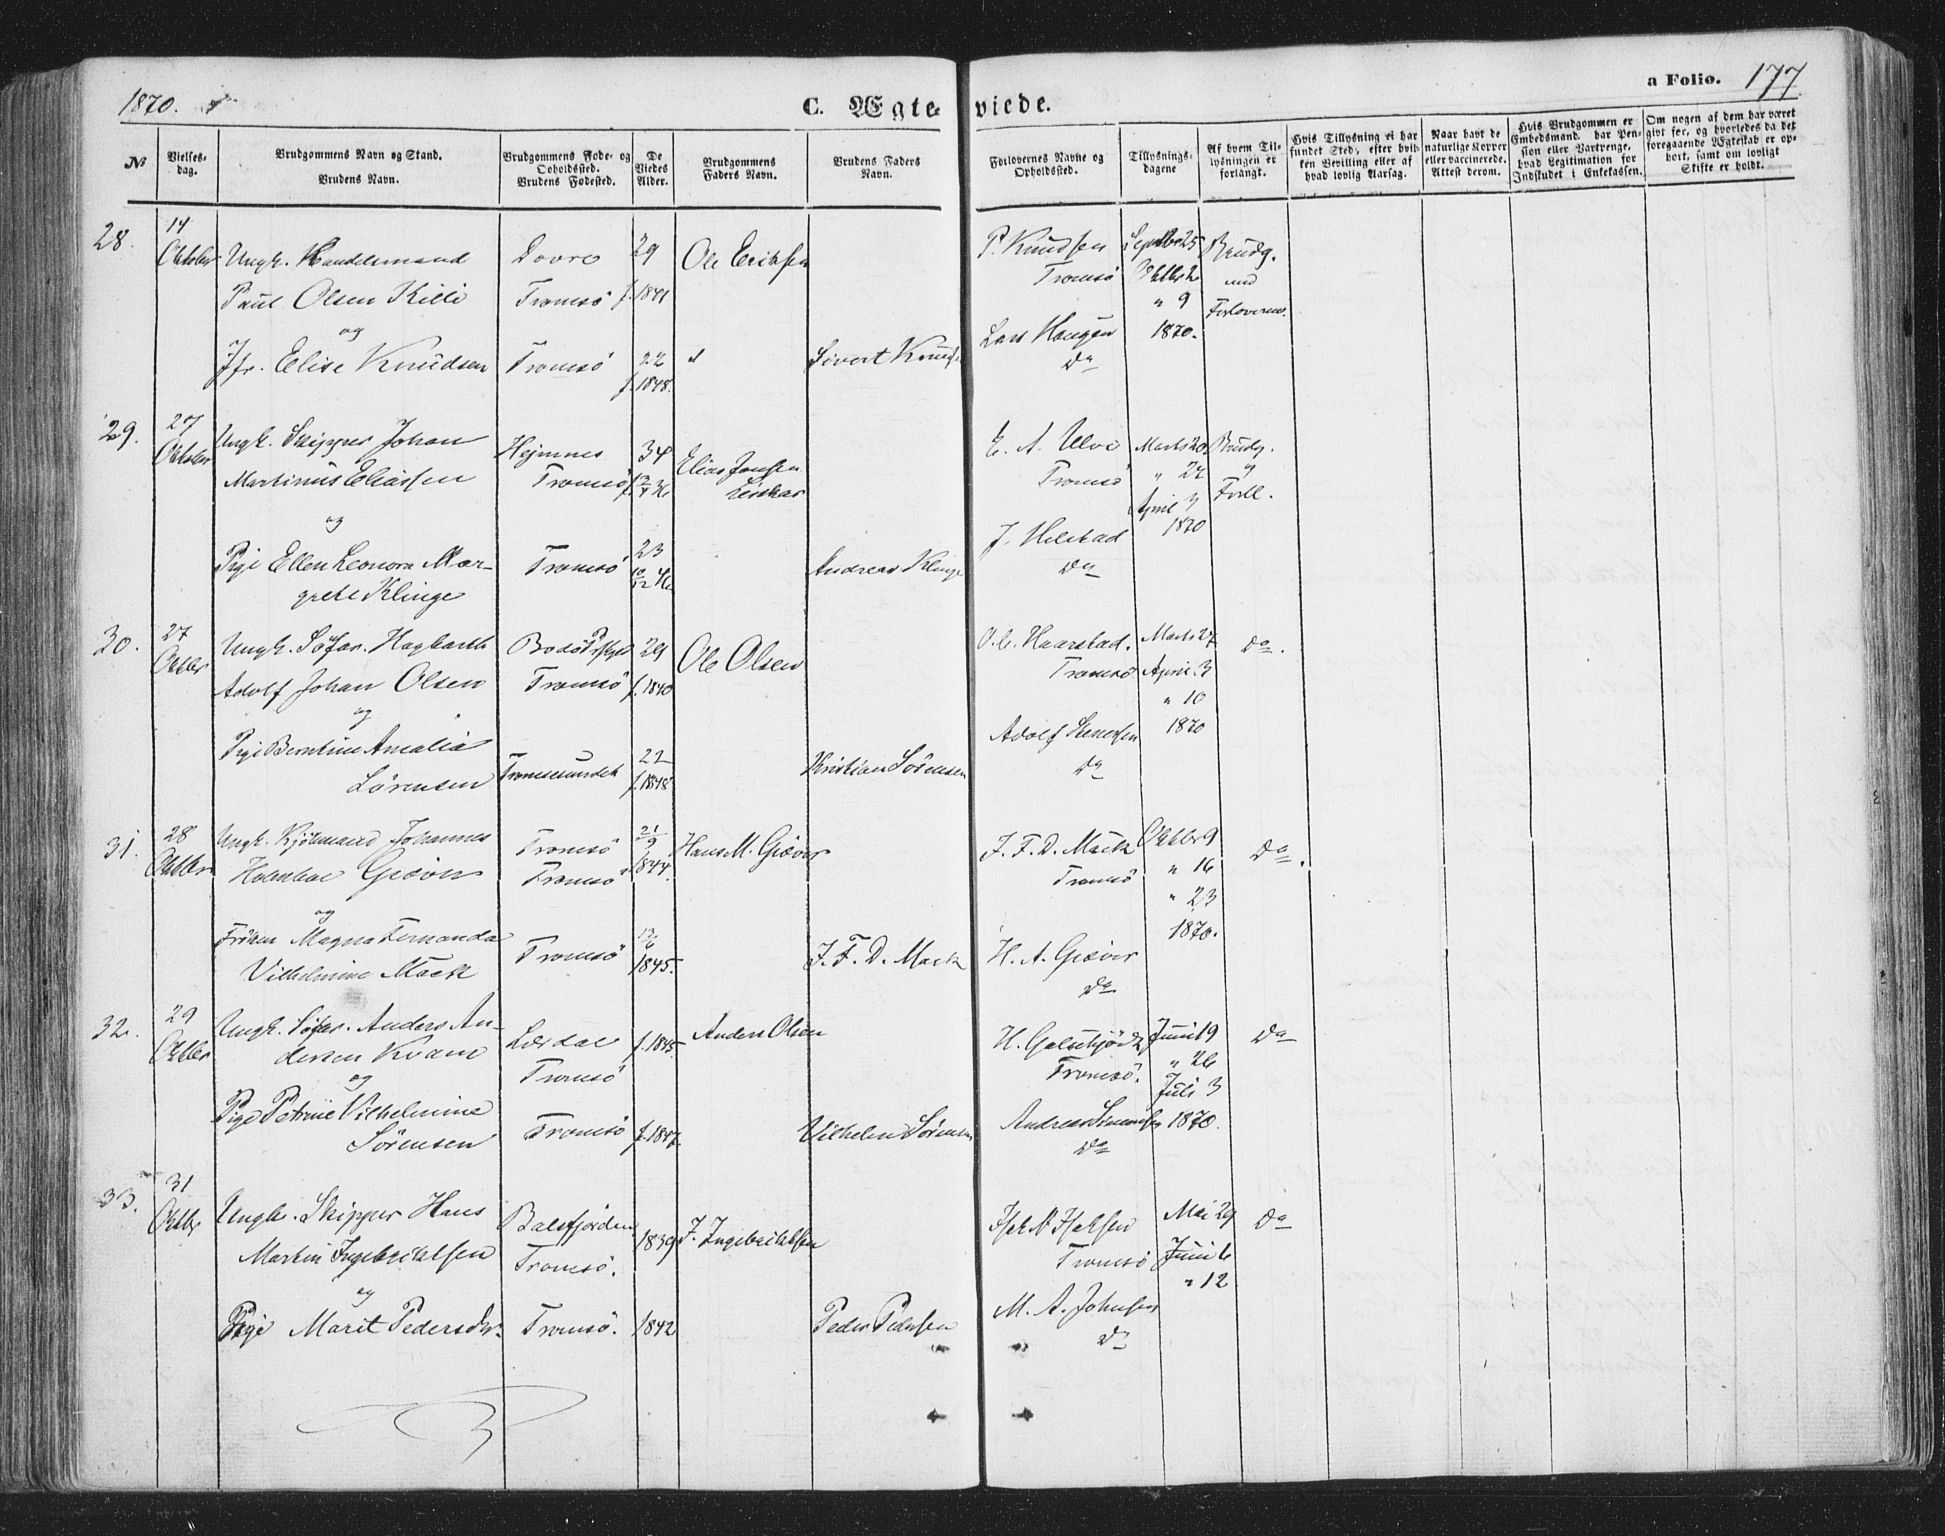 1870.
C. Ægteviede.
a Folio. 177
No
Vielses-dag.
Brudgommens Navn og Stand.
Brudens Navn.
Brudgommens Føde- og Opholdssted.
Brudens Fødested.
De Viedes Alder.
Brudgommens Faders Navn.
Brudens Faders Navn.
Forlovernes Navne og Opholdssted.
Tillysnings-dagene
Af hvem Tillysningen er forlangt.
Hvis Tillysning ei har fundet Sted, efter hvilken Bevilling eller af hvad lovlig Aarsag.
Naar havt de naturlige Kopper eller vaccinerede. Attest derom.
Hvis Brudgommen er Embedsmand, har Pension eller Vartpenge, hvad Legitimation for Indskudet i Enkekassen.
Om nogen af dem har været gift før, og hvorledes da det foregaaende Ægteskab er ophørt, samt om lovligt Skifte er holdt.
28. 14 Oktober
Ungk. Handelsmand
Paul Olsen Killi
og
Jfr. Elise Knudsen
Dovre
Tromsö
Tromsö
29
f. 1841
22
f. 1848.
Ole Eriksen
Sivert Knuds
P. Knudsen
Tromsö
Lars Haugen
Do
Septbr 25
Oktbr 2
" 9
1870.
Brudg.
med
Forloverne.
29. 27 Oktober
Ungk. Skipper Johan
Martinus Eliassen
og
Pige Ellen Leonora Mar-
grete Klinge
Hejmnes
Tromsö
Tromsö
34
23
Elias Jensen
Andreas Klinge
E. A. Ulve
Tromsö
J. Helstad
Do
Marts 20
" 27
April 3
1870
Brudg.
og
Forll.
30. 27 Oktbr
Ungk. Søfar. Hagbarth
Adolf Johan Olsen
og
Pige Berntine Amalia
Sørensen
Bodö
Tromsö
Tromsesundet
29
f. 1840
22
f. 1848
Ole Olsen
Kristian Sørensen
O. C. Haarstad.
Tromsö
Adolf Stenersen
Do
Marts 27
April 3
" 10
1870
Do.
31. 28 Oktbr
Ungk. Kjöbmand Johannes
Holmboe Giæver
og
Fröken Magna Fernanda
Vilhelmine Mack
Tromsö
Tromsö
Tromsö
21/9
1844.
13/6
1845.
Hans M. Giæver
J. F. D. Mack
J. F. D. Mack
Tromsö
H. A. Giæver
Do
Oktbr 9
" 16
" 23
1870.
Do.
32. 29 Oktbr
Ungk. Søfar. Anders An-
dersen Kvam
og
Pige Petrine Vilhelmine
Sörensen
Lærdal
Tromsö
Tromsö
f. 1845.
f. 1847
Anders Olsen
Vilhelm Sørensen
Tromsö.
Do
Juni 19
" 26
Juli 3
1870.
Do
33. 31 Oktbr
Ungk. Skipper Hans
Martin Ingebrigtsen
og
Pige Marit Pedersdtr.
Balsfjorden
Tromsö.
Tromsö.
1839
1842
J. Ingebrigtsen
Peder Pedersen
Tromsö
M. A. Johnsen
Do
Mai 29
Juni 6
" 12
Do